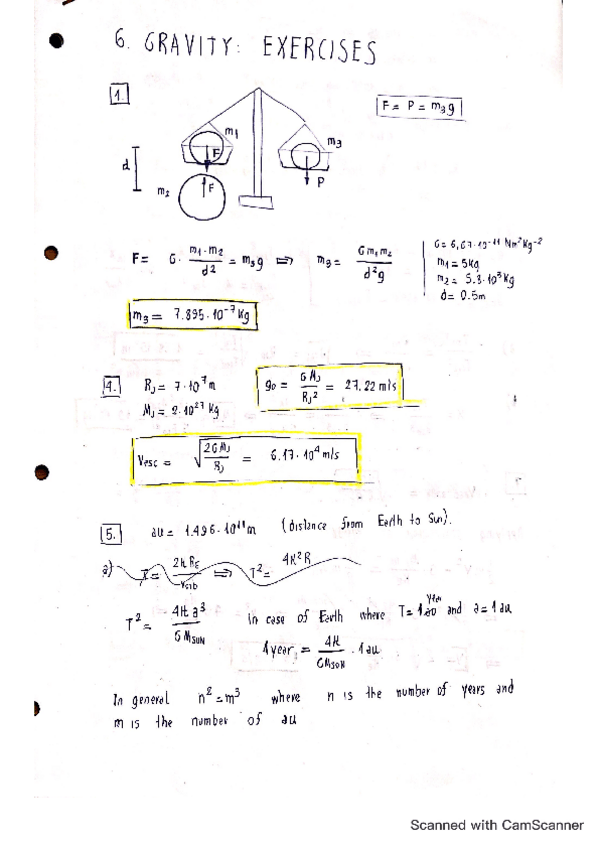 6. GRAVITY: EXERCISES
1.
F = P = m₃g
m₁
F
m₃
d
P
m₂
F
F = G · m₁·m₂/d² = m₃g ⟹ m₃ = G m₁m₂/d²g
G = 6,67·10⁻¹¹ Nm²Kg⁻²
m₁ = 5Kg
m₂ = 5.8·10³Kg
d = 0.5m
m₃ = 7.895·10⁻⁷ Kg
4.
RJ = 7·10⁷m
MJ = 2·10²⁷ Kg
g₀ = GMJ/RJ² = 27.22 m/s
Vesc = √2GMJ/RJ = 6.17·10⁴ m/s
5.
au = 1.496·10¹¹m (distance from Earth to Sun).
a)
T² = 4π a³/GMSUN
In case of Earth where T=1 year and a = 1 au
1 year = 4π/GMSUN · 1au
In general n² = m³ where n is the number of years and
m is the number of au
Scanned with CamScanner